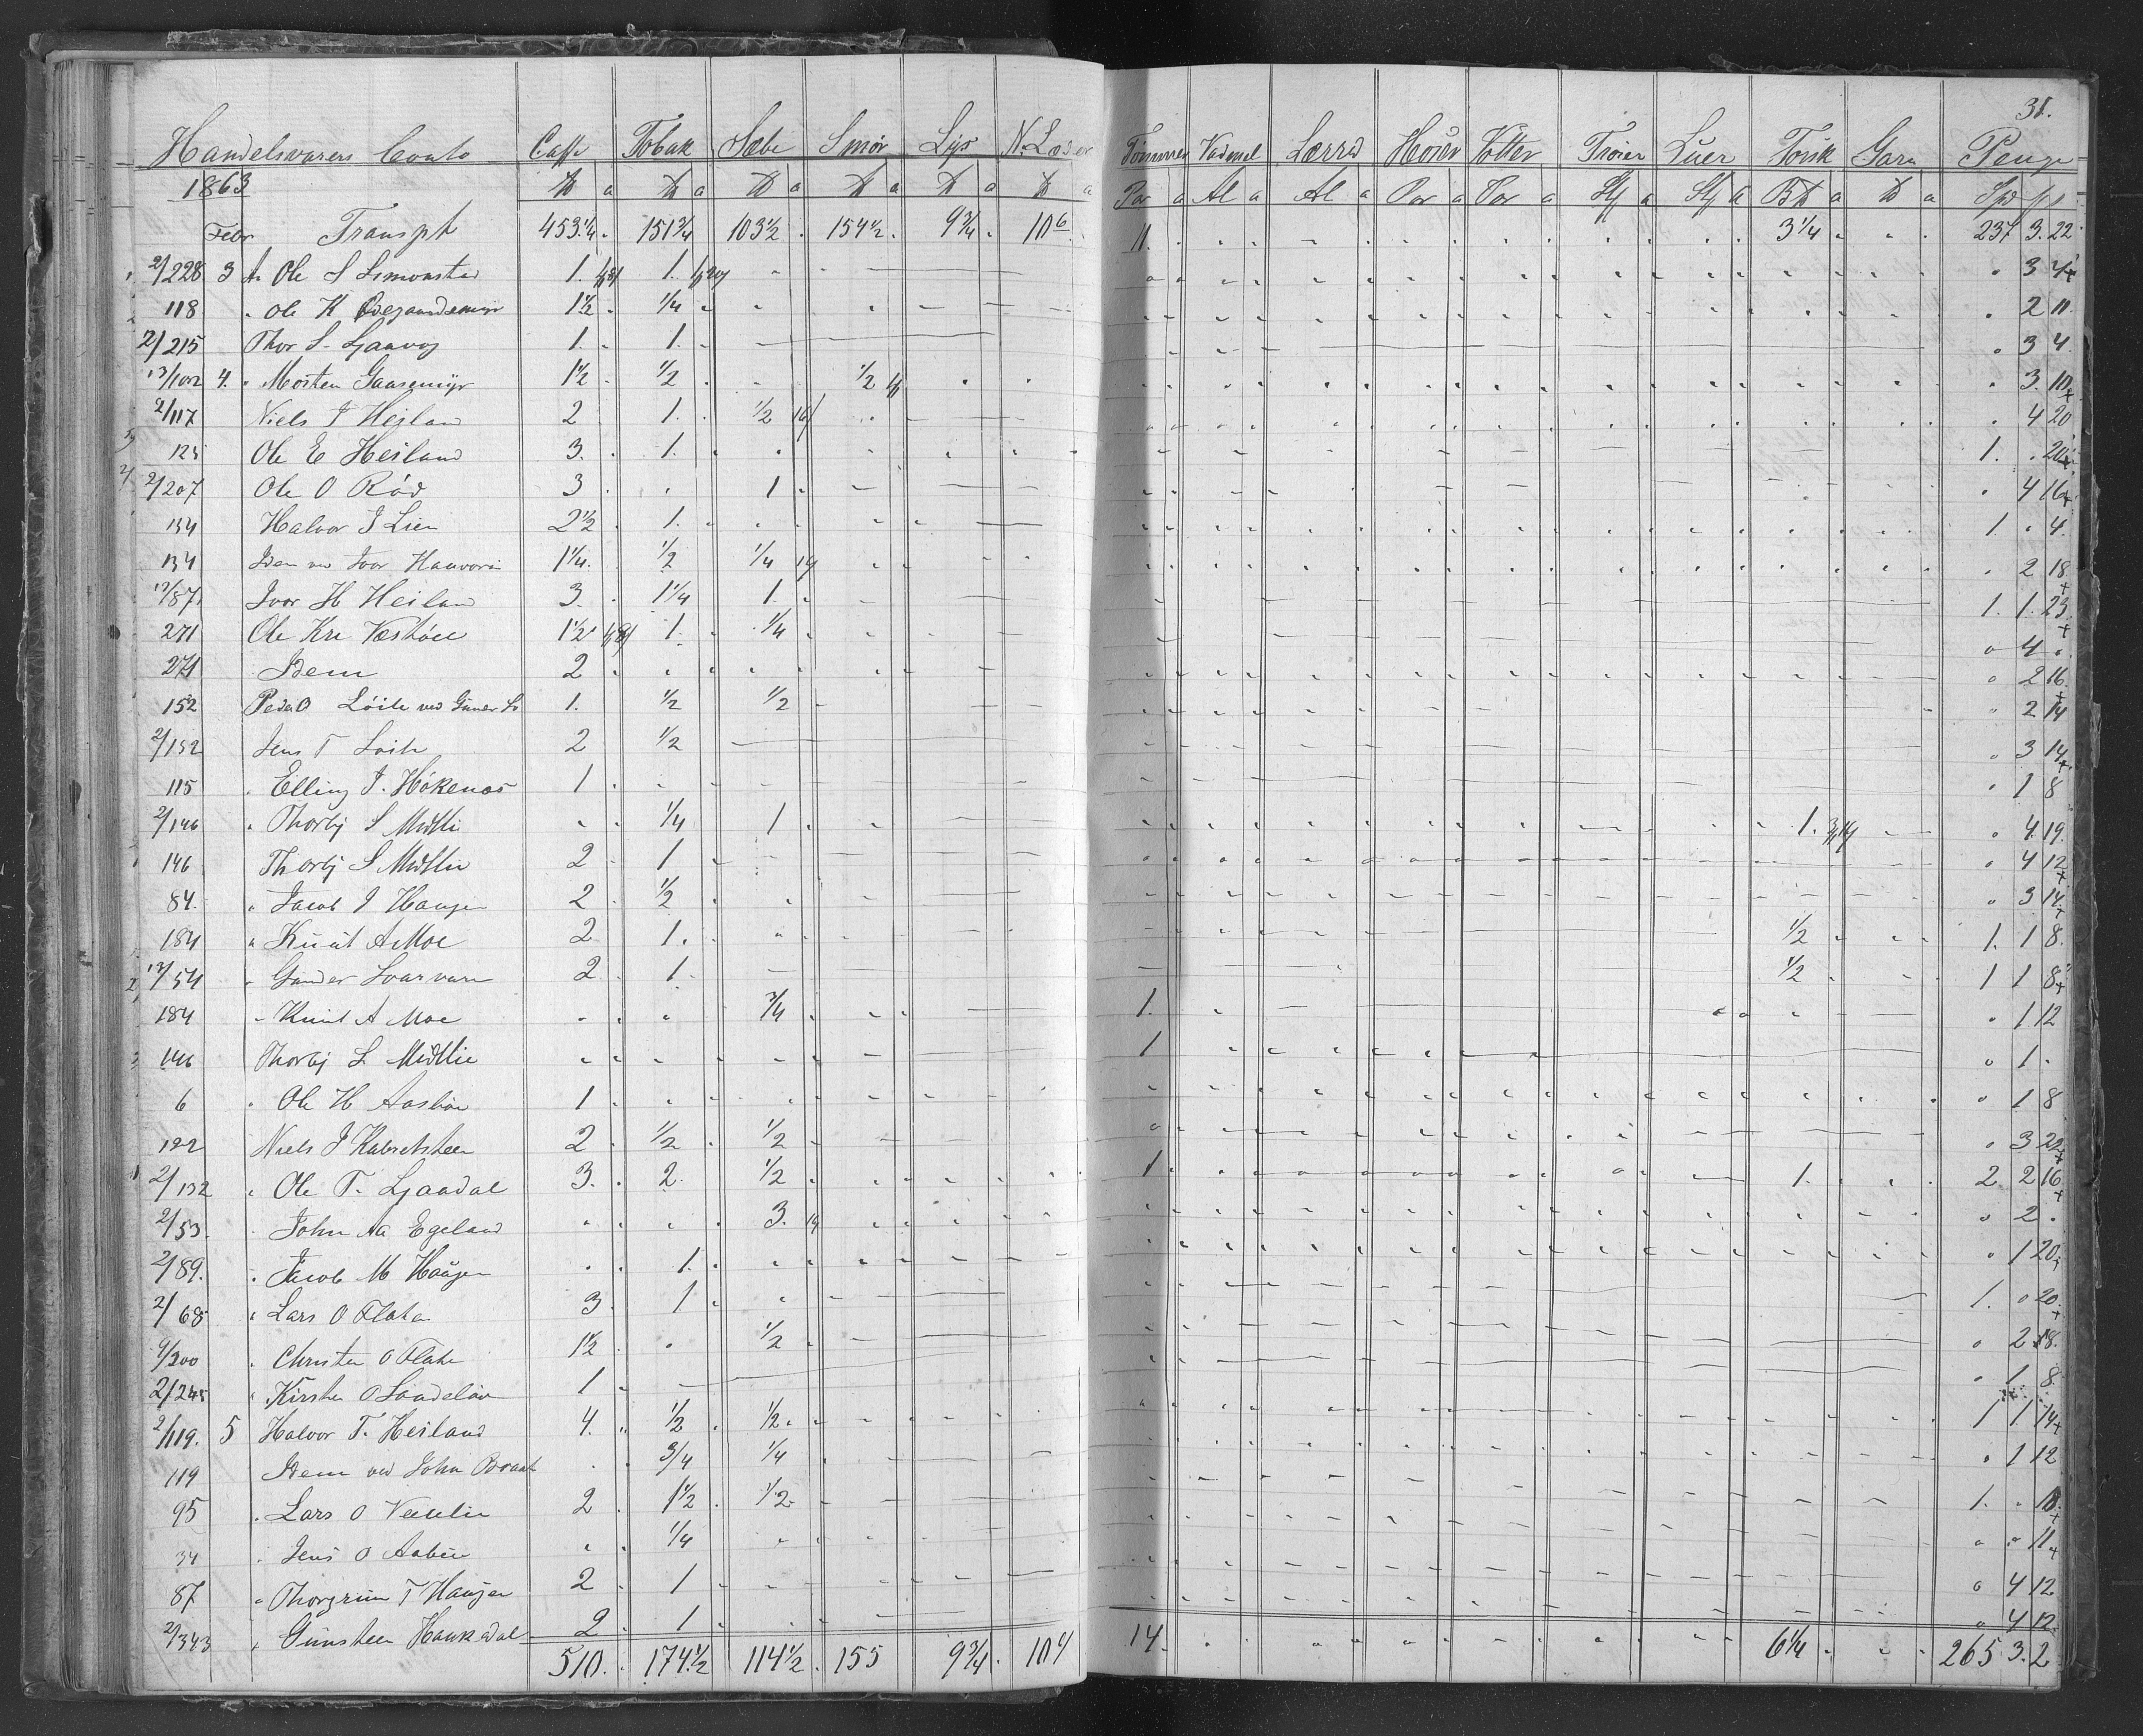 31.
Handelsvarers Conto Caffe Tobak Sæbe Smør Lys N. Læder Tømmer Vadmel Lærred Hoser Votter Trøier Luer Torsk Garn Penge
1863 ℔ a ℔ a ℔ a ℔ a ℔ a ℔ a Par a Al a Al a Par a Par a St a St a B℔ a ℔ a Spd
Febr Transpt 453 1/4 151 3/4 103 1/2 154 1/2 9 3/4 10 6 11. 3 1/4 237 3. 22
2/228 3 Ole S 1. 1. 3 4
118 Ole K 1 1/2 1/4 2 11
2/215 Thor S. 1. 1. 3 4
13/102 4. Morten Gaasemyr 1 1/2 1/2 1/2 3. 10
2/117 Niels J Heiland 2 1. 1/2 4 20
125 Ole E Heiland 3. 1. 1. 20
2/207 Ole O Rød 3 1 4 16
134 Halvor J Lien 2 1/2 1. 1. 4.
134 Idem ved 1 1/4 1/2 1/4 2 18
12/87 Ivar H Heiland 3. 1 1/4 1. 1. 1. 23
271 Ole Kr 1 1/2 1. 1/4 4
271 Idem 2 2 16
152 Peder O Løite ved 1. 1/2 1/2 2 14
2/152 Jens T Løite 2 1/2 3 14
115 Elling T. Høkenæs 1 1 8
2/146 Thorbj S Midtlie 1/4 1 1. 4 19
146 Thorbj S Midtlie 2 1 4 12
84 Jacob J Haugen 2 1/2 3 14
184 Knut A Moe 2 1. 1/2 1. 1 8.
12/54 Gunder 2 1. 1/2 1 1 8
184 Knut A Moe 3/4 1. 1 12
146 Thorbj S Midtlie 1 1
6 Ole H 1 1 8
122 Niels J 2 1/2 1/2 3 22
2/132 Ole T. Ljaadal 3. 2 1/2 1 1. 2 2 16
2/53 John Aa Egeland 3. 2
2/89. Jacob M Haugen 1. 1 20
2/68 Lars O Flaten 3 1 1. 20
9/300 Christen O Flaten 1 1/2 1/2 2 18
2/245 Kirsten O 1 1 8
2/119. 5 Halvor T. Heiland 4. 1/2 1/2 1 1 14
119 Idem ved John Braat 3/4 1/4 1 12
95 Lars O 2 1 1/2 1/2 1. 18
34 Jens O 1/4 11
87 Thorgrim T Haugen 2 1 4 12
2/343 Gunsteen Haukedal 2 1 4 12
510. 174 1/2 114 1/2 155 9 3/4 10 14. 6 1/4 265 3. 2